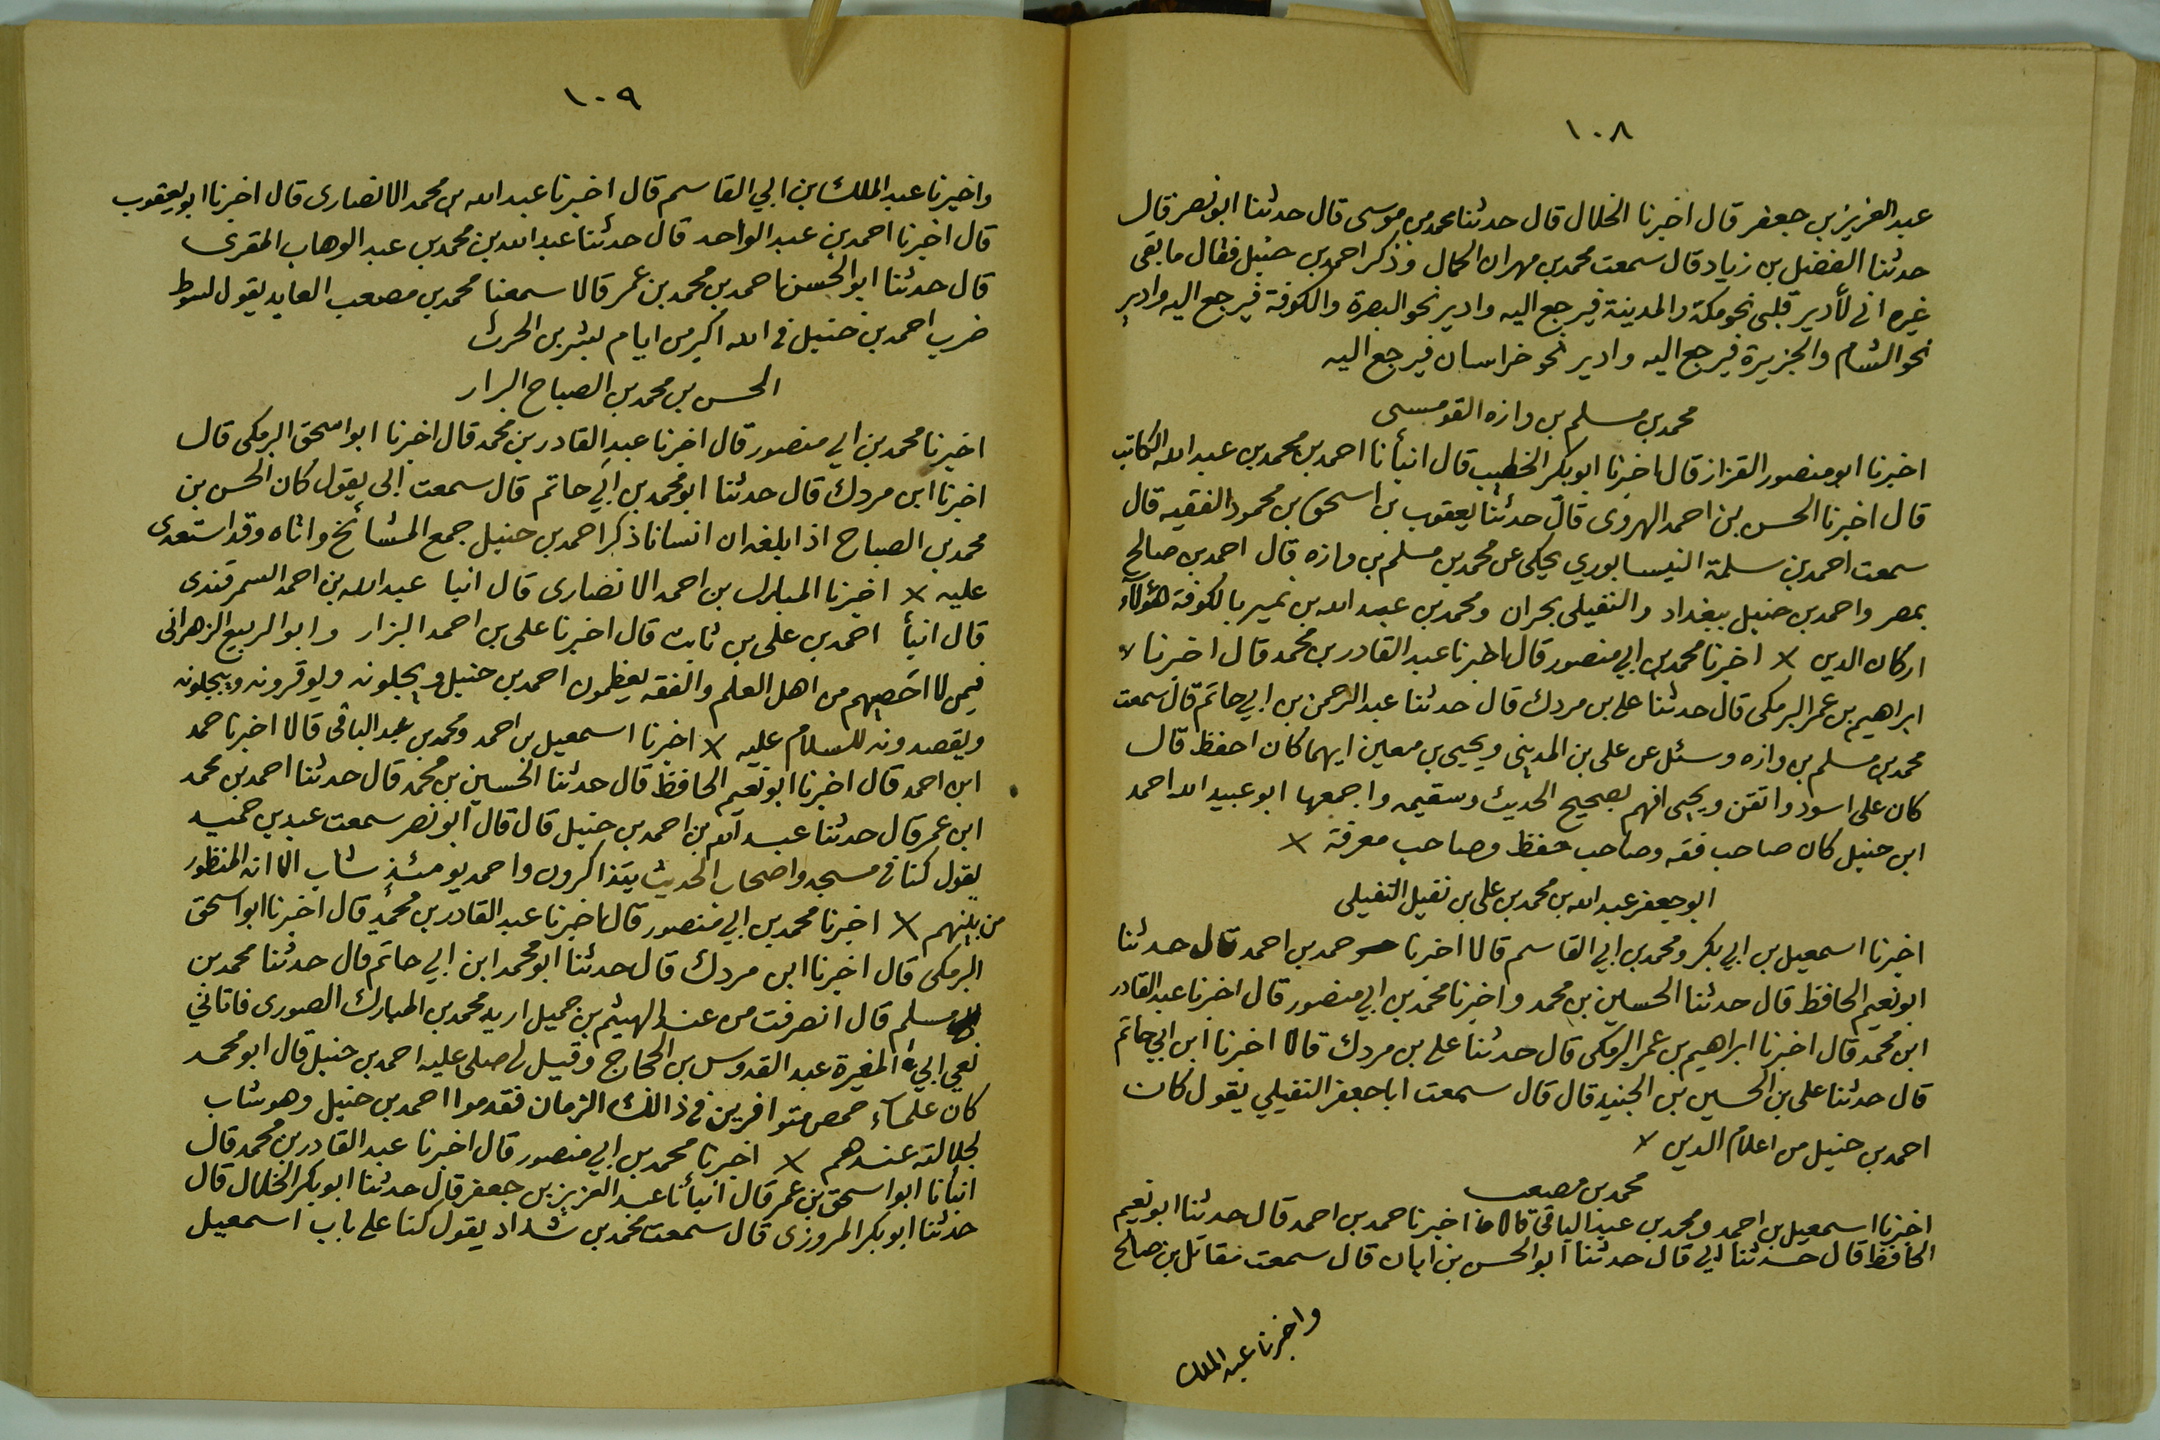 ١٠٨
عبد العزيز بن جعفر قال اخبرنا الخلال قال حدثنا محمد بن موسى قال حدثنا ابو نصر قال
حدثنا الفضل بن زياد قال سمعت محمد بن مهران الحمال وذكر احمد بن حنبل فقال ما بقى
غيره انى لأدير قلبى نحو مكة والمدينة فيرجع اليه وادير نحو البصرة والكوفة فيرجع اليه وادير
نحو الشام والجزيرة فيرجع اليه وادير نحو خراسان فيرجع اليه
محمد بن مسلم بن وازه القومسى
اخبرنا ابو منصور القزاز قال اخبرنا ابو بكر الخطيب قال انبأنا احمد بن محمد بن عبد الله الكاتب
قال اخبرنا الحسن بن احمد الهروى قال حدثنا يعقوب بن اسحق بن محمود الفقيه قال
سمعت احمد بن سلمة النيسابوري يحكى عن محمد بن مسلم بن وازه قال احمد بن صالح
بمصر واحمد بن حنبل ببغداد والنفيلى بحران ومحمد بن عبد الله بن نمير بالكوفة هؤلآء
اركان الدين × اخبرنا محمد بن ابي منصور قال اخبرنا عبد القادر بن محمد قال اخبرنا
ابراهيم بن عمر البرمكى قال حدثنا على بن مردك قال حدثنا عبد الرحمن بن ابي حاتم قال سمعت
محمد بن مسلم بن وازه وسئل عن على بن المديني ويحيى بن معين ايهما كان احفظ قال
كان على اسود واتقن ويحيى افهم بصحيح الحديث وسقيمه واجمعها ابو عبيد الله احمد
ابن حنبل كان صاحب فقه وصاحب حفظ وصاحب معرفة ×
ابو جعفر عبد الله بن محمد بن على بن نفيل النفيلى
اخبرنا اسمعيل بن ابي بكر ومحمد بن ابي القاسم قالا اخبرنا حمد بن احمد قال حدثنا
ابو نعيم الحافظ قال حدثنا الحسين بن محمد واخبرنا محمد بن ابي منصور قال اخبرنا عبد القادر
ابن محمد قال اخبرنا ابراهيم بن عمر البرمكى قال حدثنا على بن مردك قالا اخبرنا ابن ابي حاتم
قال حدثنا على بن الحسين بن الجنيد قال قال سمعت ابا جعفر النفيلي يقول كان
احمد بن حنبل من اعلام الدين ×
محمد بن مصعب
اخبرنا اسمعيل بن احمد ومحمد بن عبد الباقى قالا اخبرنا حمد بن احمد قال حدثنا ابو نعيم
الحافظ قال حدثنا ابي قال حدثنا ابو الحسن بن ابان قال سمعت مقاتل بن صالح
واخبرنا عبد الملك
١٠٩
واخبرنا عبد الملك بن ابي القاسم قال اخبرنا عبد الله بن محمد الانصارى قال اخبرنا ابو يعقوب
قال اخبرنا احمد بن عبد الواحد قال حدثنا عبد الله بن محمد بن عبد الوهاب المقرى
قال حدثنا ابو الحسن احمد بن محمد بن عمر قالا سمعنا محمد بن مصعب العابد يقول لسوط
ضرب احمد بن حنبل فى الله اكبر من ايام بشر بن الحرث
الحسن بن محمد بن الصباح البزار
اخبرنا محمد بن ابي منصور قال اخبرنا عبد القادر بن محمد قال اخبرنا ابو اسحق البرمكى قال
اخبرنا ابن مردك قال حدثنا ابو محمد بن ابي حاتم قال سمعت ابى يقول كان الحسن بن
محمد بن الصباح اذا بلغه ان انسانا ذكر احمد بن حنبل جمع المشائخ واتاه وقد استعدى
عليه × اخبرنا المبارك بن احمد الانصارى قال انبا عبد الله بن احمد السمرقندى
قال انبأ احمد بن على بن ثابت قال اخبرنا على بن احمد البزار وابو الربيع الزهرانى
فيمن لا احصيهم من اهل العلم والفقه يعظمون احمد بن حنبل ويجلونه ويوقرونه ويبجلونه
ويقصدونه للسلام عليه × اخبرنا اسمعيل بن احمد ومحمد بن عبد الباقى قالا اخبرنا حمد
ابن احمد قال اخبرنا ابو نعيم الحافظ قال حدثنا الحسين بن محمد قال حدثنا احمد بن محمد
ابن عمر قال حدثنا عبد الله بن احمد بن حنبل قال قال ابو نصر سمعت عبد بن حميد
يقول كنا فى مسجد واصحاب الحديث يتذاكرون واحمد يومئذ شاب الا انه المنظور
من بينهم × اخبرنا محمد بن ابي منصور قال اخبرنا عبد القادر بن محمد قال اخبرنا ابو اسحق
البرمكى قال اخبرنا ابن مردك قال حدثنا ابو محمد ابن ابي حاتم قال حدثنا محمد بن
مسلم قال انصرفت من عند الهيثم بن جميل اريد محمد بن المبارك الصورى فاتاني
نعي ابي المغيرة عبد القدوس بن الحجاج وقيل لى صلى عليه احمد بن حنبل قال ابو محمد
كان علمآء حمص متوافرين فى ذالك الزمان فقدموا احمد بن حنبل وهو شاب
لجلالته عندهم × اخبرنا محمد بن ابي منصور قال اخبرنا عبد القادر بن محمد قال
انبأنا ابو اسحق بن عمر قال انبأنا عبد العزيز بن جعفر قال حدثنا ابو بكر الخلال قال
حدثنا ابو بكر المروزى قال سمعت محمد بن شداد يقول كنا على باب اسمعيل